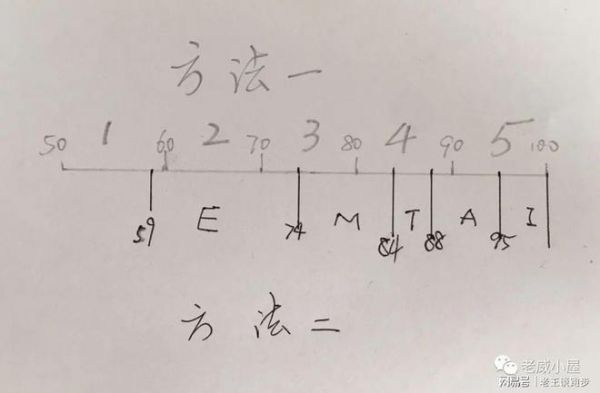 方法一
50 1 60 2 70 3 80 4 90 5 100
59 E 74 M 84 T 88 A 95 I
方法二
老威小屋
网易号 | 老王谈跑步